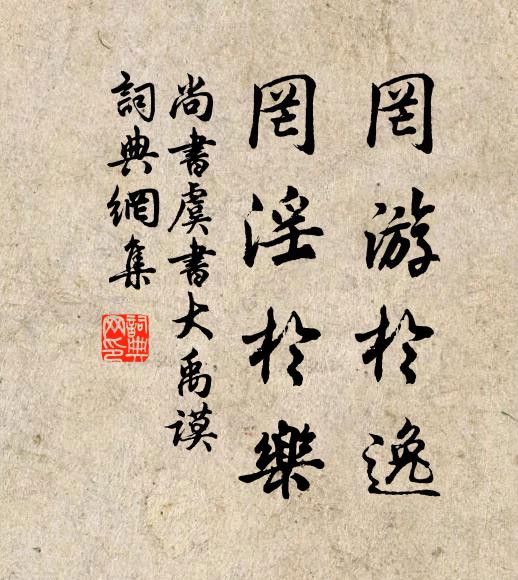 罔游於逸
罔淫於樂
尚書虞書大禹謨
詞典網集
詞典
网印